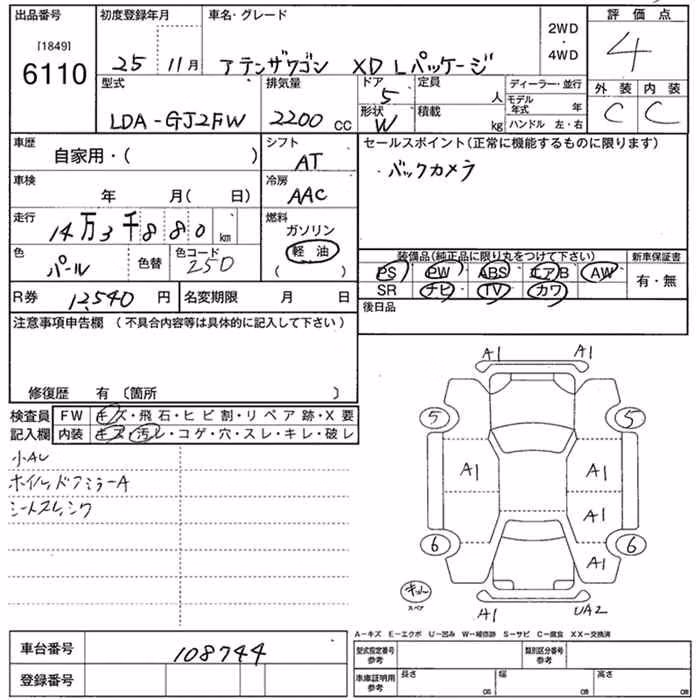 出品番号 初度登録年月 車名・グレード 評価点
[1849] 6110 25 11月 アテンザワゴン XD Lパッケージ 2WD・4WD 4
型式 排気量 ドア 5 定員 人 ディーラー・並行 外装 内装
LDA-GJ2FW 2200 cc 形状 W 積載 kg モデル年式 年 C C
ハンドル 左・右
車歴 自家用・( ) シフト AT セールスポイント(正常に機能するものに限ります)
車検 年 月( 日) 冷房 AAC ・バックカメラ
走行 14万3千880km 燃料 ガソリン
軽油
( )
色 パール 色替 色コード 250 装備品(純正品に限り丸をつけて下さい) 新車保証書
PS PW ABS エアB AW 有・無
SR ナビ TV カワ
R券 12,540円 名変期限 月 日 後日品
注意事項申告欄 (不具合内容等は具体的に記入して下さい)
修復歴 有 〔箇所 〕
検査員 FW キズ・飛石・ヒビ割・リペア跡・X要
記入欄 内装 キズ・汚レ・コゲ・穴・スレ・キレ・破レ
小AU
ホイル、ドアミラーA
シートスレ、シワ
A1 A1
5 5
A1 A1
A1
6 6
A1
スペア
A1 UA2
A-キズ E-エクボ U-凹み W-補修跡 S-サビ C-腐食 XX-交換済
車台番号 108744 型式指定番号 参考 類別区分番号 参考
登録番号 車庫証明用 参考 長さ cm 幅 cm 高さ cm